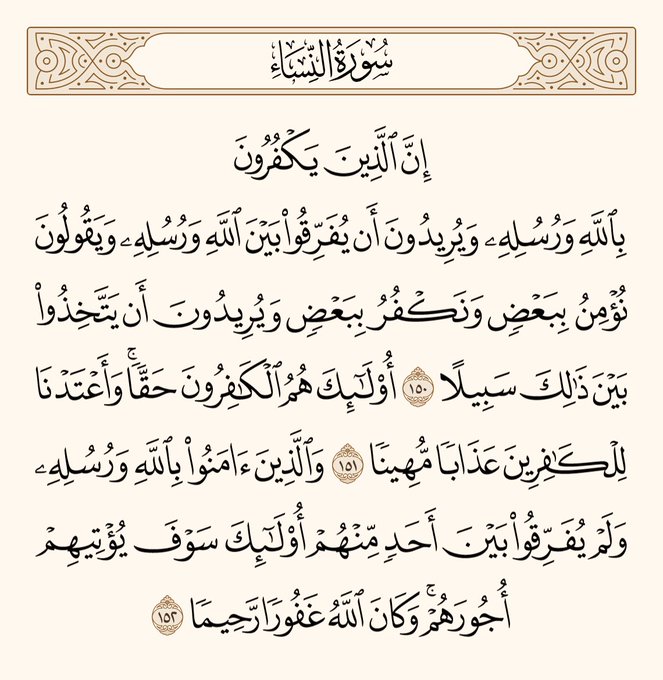 سُورَةُ النِّسَاءِ
إِنَّ ٱلَّذِينَ يَكۡفُرُونَ
بِٱللَّهِ وَرُسُلِهِۦ وَيُرِيدُونَ أَن يُفَرِّقُواْ بَيۡنَ ٱللَّهِ وَرُسُلِهِۦ وَيَقُولُونَ
نُؤۡمِنُ بِبَعۡضٖ وَنَكۡفُرُ بِبَعۡضٖ وَيُرِيدُونَ أَن يَتَّخِذُواْ
بَيۡنَ ذَٰلِكَ سَبِيلًا ١٥٠ أُوْلَٰٓئِكَ هُمُ ٱلۡكَٰفِرُونَ حَقّٗاۚ وَأَعۡتَدۡنَا
لِلۡكَٰفِرِينَ عَذَابٗا مُّهِينٗا ١٥١ وَٱلَّذِينَ ءَامَنُواْ بِٱللَّهِ وَرُسُلِهِۦ
وَلَمۡ يُفَرِّقُواْ بَيۡنَ أَحَدٖ مِّنۡهُمۡ أُوْلَٰٓئِكَ سَوۡفَ يُؤۡتِيهِمۡ
أُجُورَهُمۡۚ وَكَانَ ٱللَّهُ غَفُورٗا رَّحِيمٗا ١٥٢